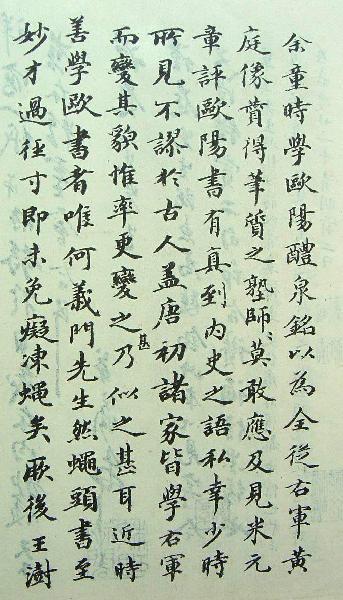 余童時學歐陽醴泉銘以為全從右軍黃
庭像贊得筆質之塾師〻莫敢應及見米元
章評歐陽書有真到内史之語私幸少時
所見不謬於古人蓋唐初諸家皆學右軍
而變其貌惟率更變之甚乃似之甚耳近時
善學歐書者唯何義門先生然蠅頭書至
妙才過徑寸即未免癡凍蠅矣厥後王澍